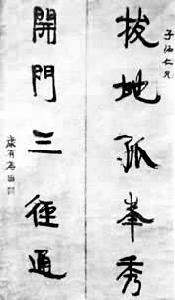 子㳂仁兄
拔地孤峯秀
開門三徑通
康有為